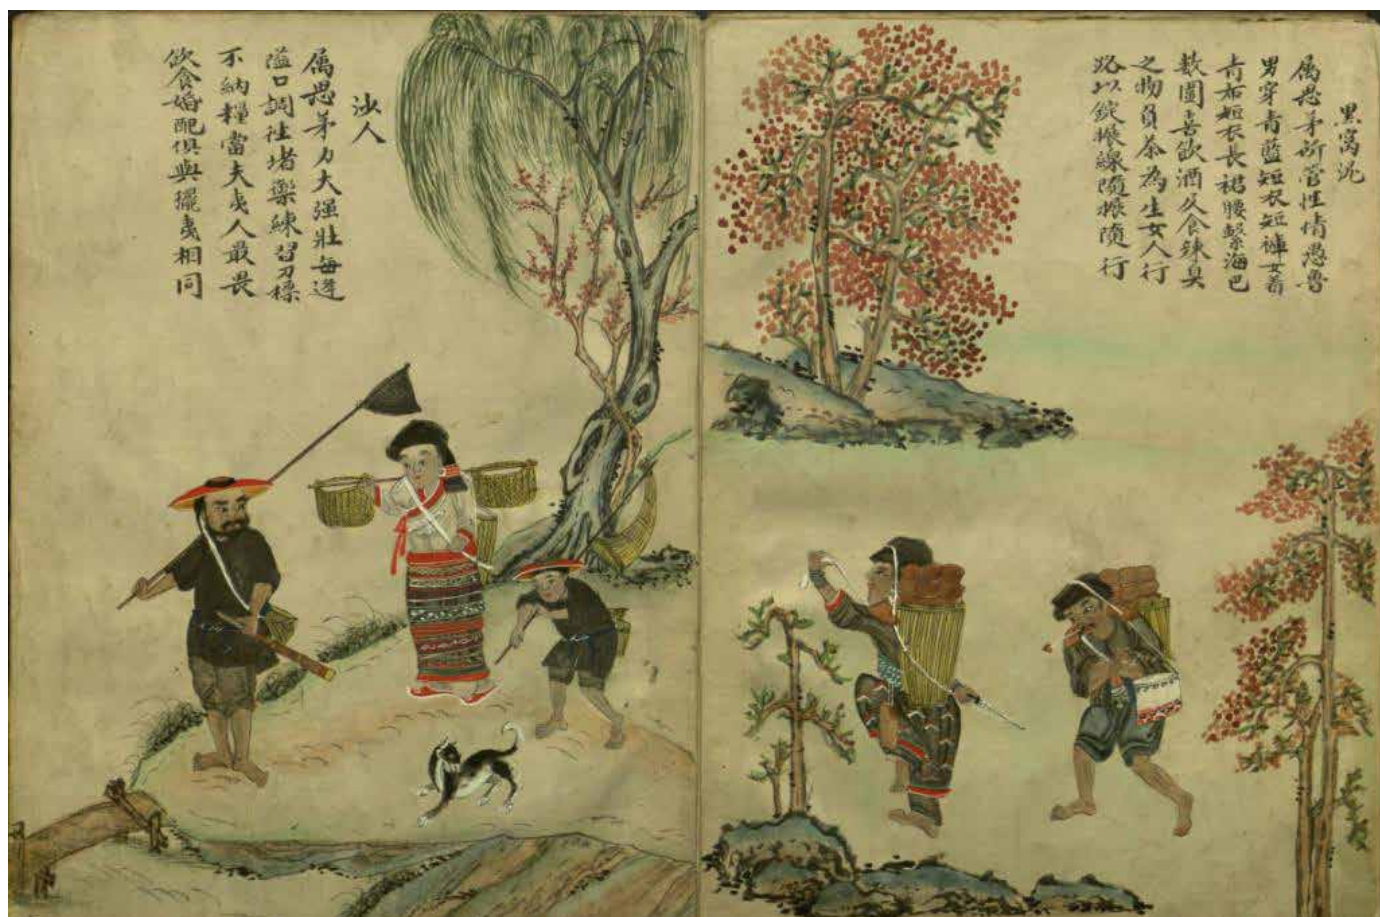 黒窩泥
属思茅所管性情愚魯
男穿青藍短衣短褲女着
青布短衣長裙腰繫海巴
数圍喜飲酒及食辣臭
之物負茶為生女人行
路以錠撚線隨撚隨行
沙人
属思茅力大强壯每逢
隘口調往堵禦練習刀標
不納糧當夫夷人最畏
飲食婚配俱與擺夷相同